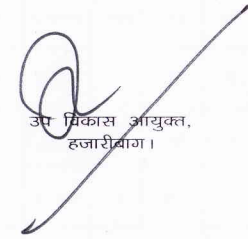 उप विकास आयुक्त,
हजारीबाग।